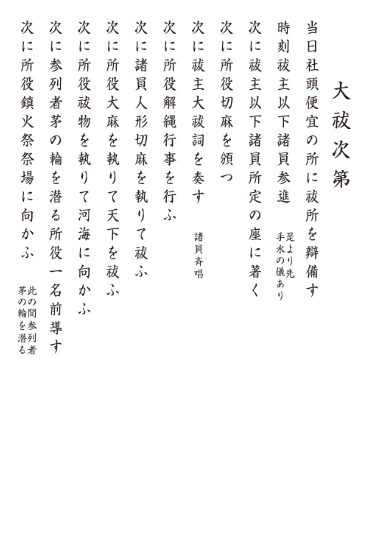 大祓次第
当日社頭便宜の所に祓所を辯備す
時刻祓主以下諸員参進
是より先
手水の儀あり
次に祓主以下諸員所定の座に著く
次に所役切麻を頒つ
次に祓主大祓詞を奏す
諸員斉唱
次に所役解縄行事を行ふ
次に諸員人形切麻を執りて祓ふ
次に所役大麻を執りて天下を祓ふ
次に所役祓物を執りて河海に向かふ
次に参列者茅の輪を潜る所役一名前導す
次に所役鎮火祭祭場に向かふ
此の間参列者
茅の輪を潜る